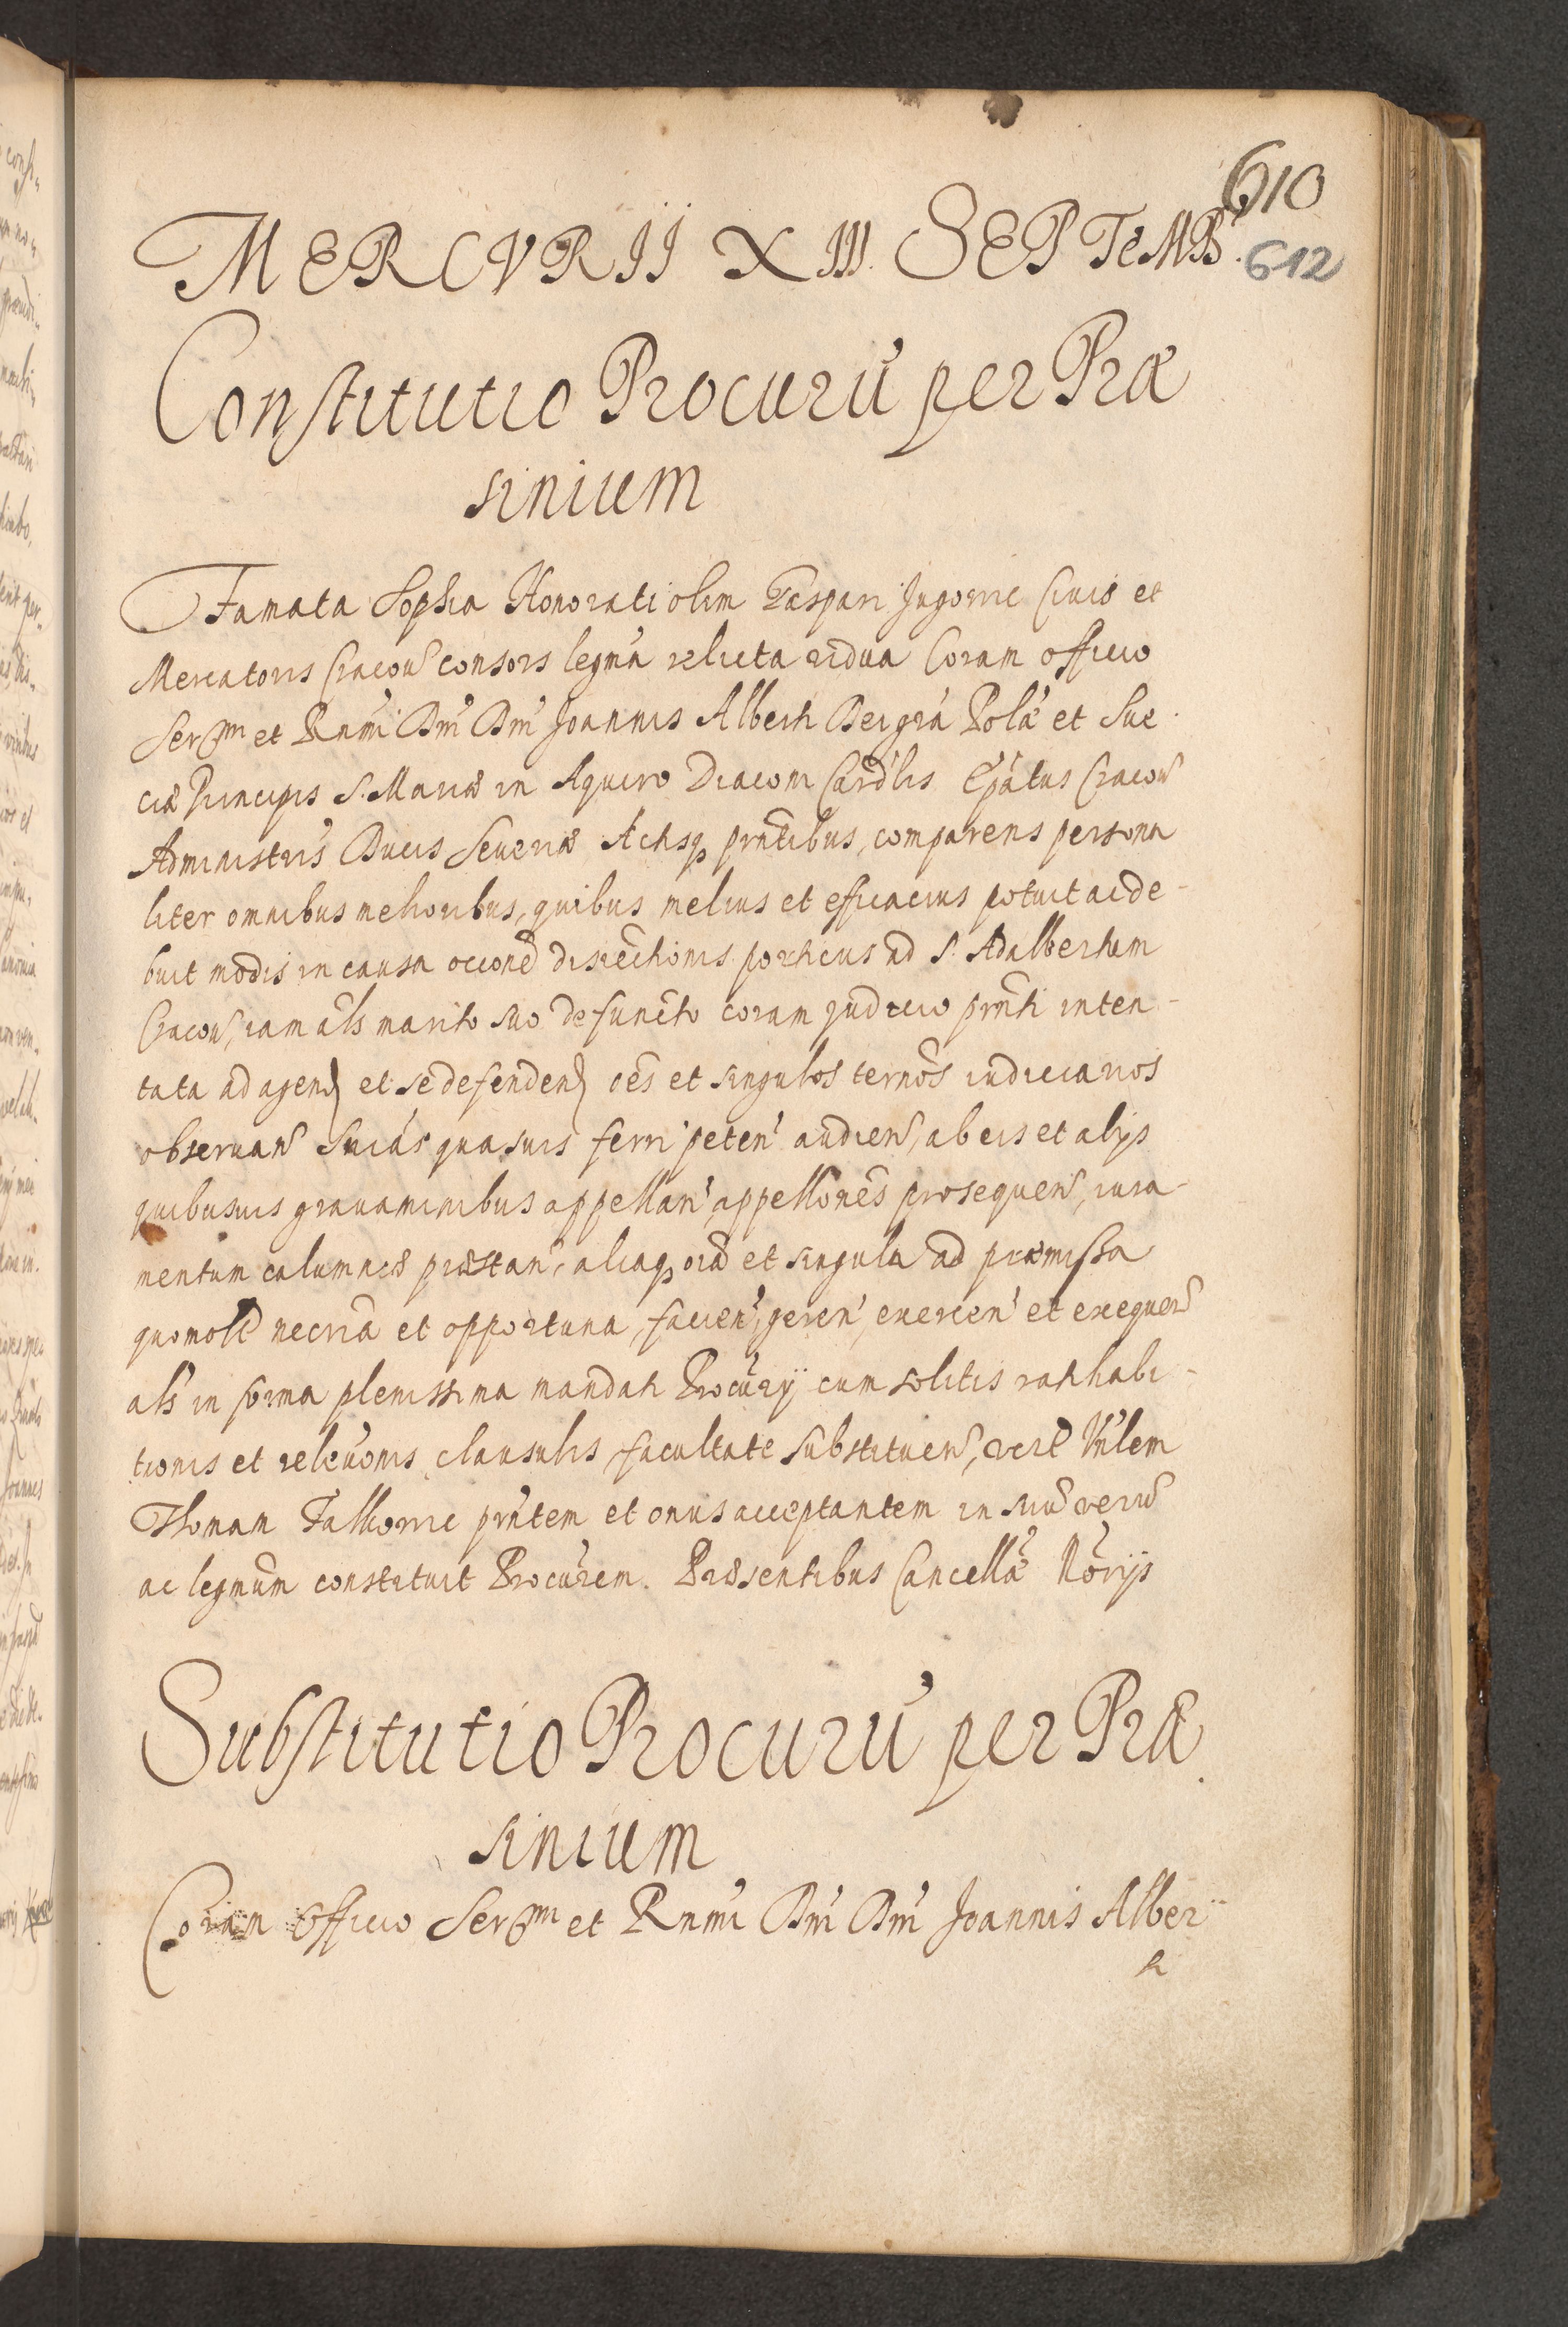 610
MERCVRII XIII. SEPTEMB.
612
Constitutio Procuru' per Præ
sinium
Famata Sophia Honorati olim Caspari Jugowic Ciuis et
Mercatoris Cracoũ consors legm̃a relicta vidua Coram officio
Serᵐⁱ et Rnmi Dni Dni Joannis Alberti Dei gr̃a Polæ et Sue
ciæ Principis S. Mariæ in Aquiro Diaconi Card'lis Ep̃atus Cracoũ
Administris Ducis Seueriæ Actisq̃ pñtibus, comparens persona
liter omnibus melioribus, quibus melius et efficacius potuit ac de-
buit modis in causa occone direchonis porticus ad S. Adalbertum
Cracoũ, iam als marito suo defuncto coram judicio pr̃nti inten-
tata ad agend et se defendend oẽs et singulos ternõs iudiciarios
obseruan Snias quasuis ferri peten' audien, ab eis et alijs
quibusuis grauaminibus appellan', appellonẽs prosequen, iura-
mentum calumniæ præstan', aliaq̃ oĩa et singula ad præmissa
quomolt necr̃ia et opportuna, facien', geren', exercen' et exequen
als in forma plenissima mandati Procurij cum solitis ratihabi-
tionis et releuonis clausulis, facultate substituen, verẽ Vn'lem
Thomam Falkowic pr̃ntem et onus acceptantem in suũ verũ
ac legmũm constituit Procurem. Præsentibus Cancellæ Norijs
Substitutio Procuru' per Præ
sinium
Coram Officio Serᵐⁱ et Rnmi Dni Dni Joannis Alber-
ti